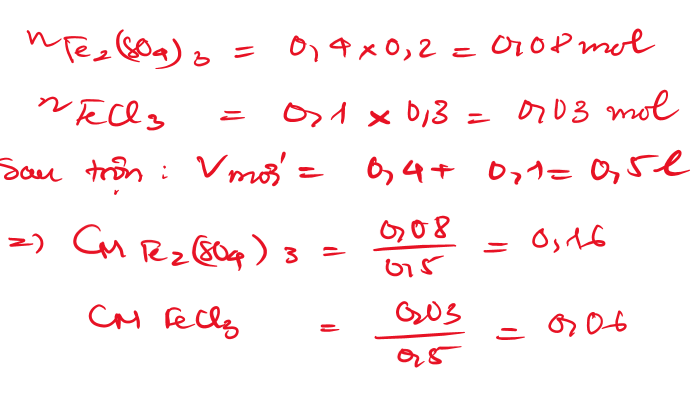 nFe2(SO4)3 = 0,4 x 0,2 = 0,08 mol
nFeCl3 = 0,1 x 0,3 = 0,03 mol
Sau trộn : Vmới = 0,4 + 0,1 = 0,5 l
=> CM Fe2(SO4)3 = 0,08/0,5 = 0,16
CM FeCl3 = 0,03/0,5 = 0,06